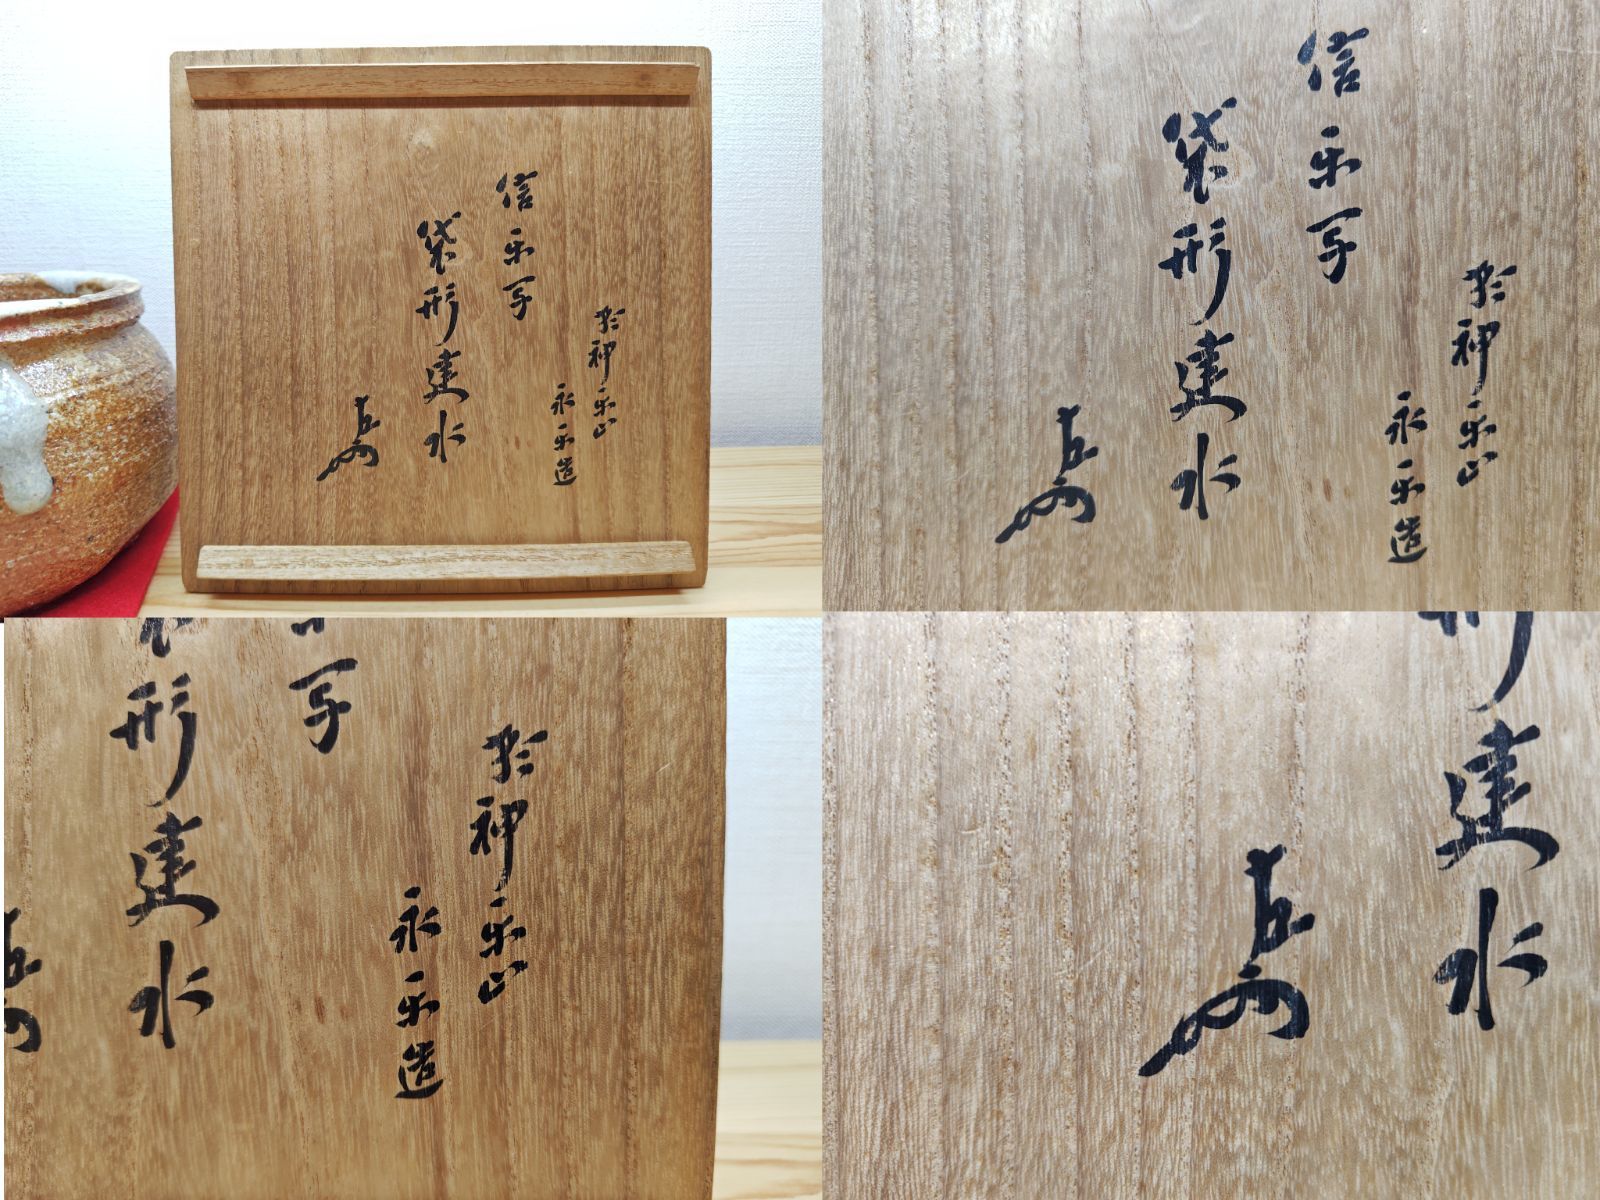 於神楽山
永楽造
信楽写
袋形建水
於神楽山
永楽造
信楽写
袋形建水
於神楽山
永楽造
写
形建水
建水